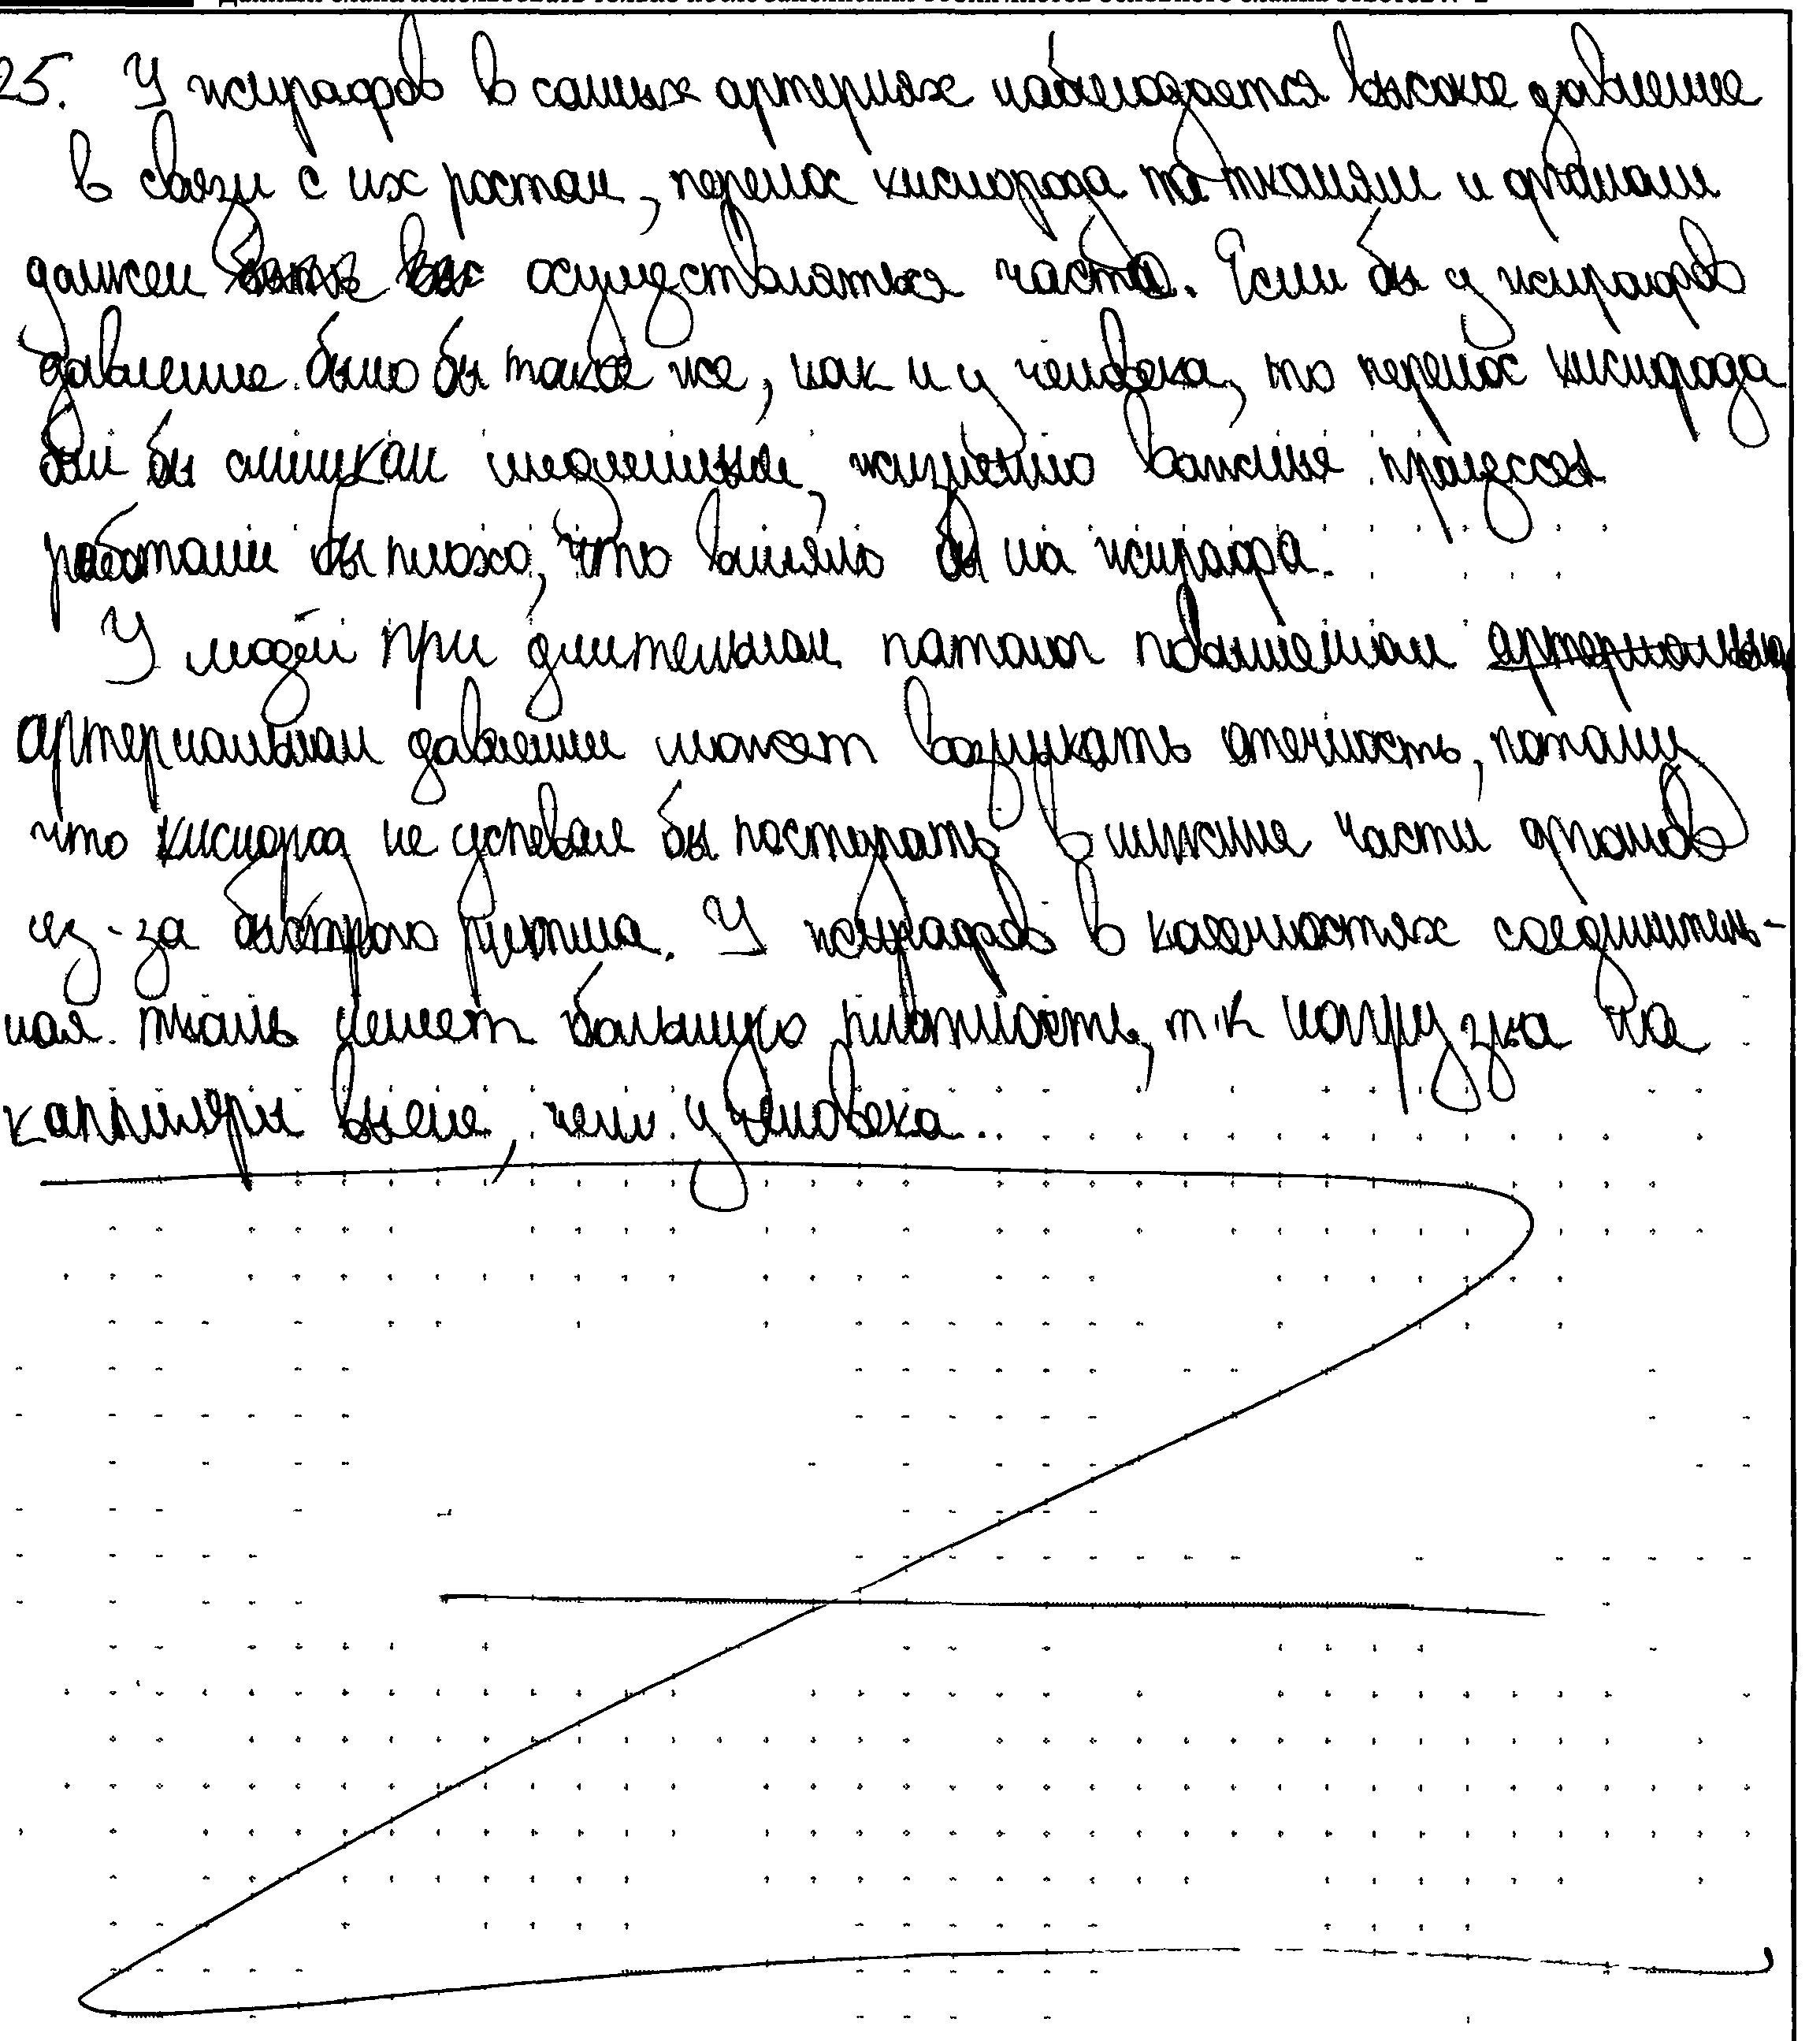 25. У жирафов в самых артериях наблюдается высокое давление
в связи с их ростом, перенос кислорода по тканям и органам
должен осуществляться часто. Если бы у жирафов
давление было бы такое же, как и у человека, то перенос кислорода
был бы слишком медленным, жизненно важные процессы
работали бы плохо, что влияло бы на жирафа.
У людей при длительном повышенном
артериальном давлении может возникать отечность, потому
что кислород не успевал бы поступать в нижние части органов
из-за быстрого ритма. У жирафов в конечностях соединитель-
ная ткань имеет большую плотность, т.к нагрузка на
капилляры выше, чем у человека.